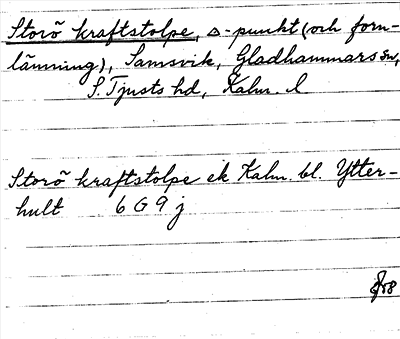 Storö kraftstolpe, △-punkt (och forn-
lämning), Samsvik, Gladhammars sn,
S. Tjusts hd, Kalm. l
Storö kraftstolpe ek Kalm. bl. Ytter-
hult 6 G 9 j